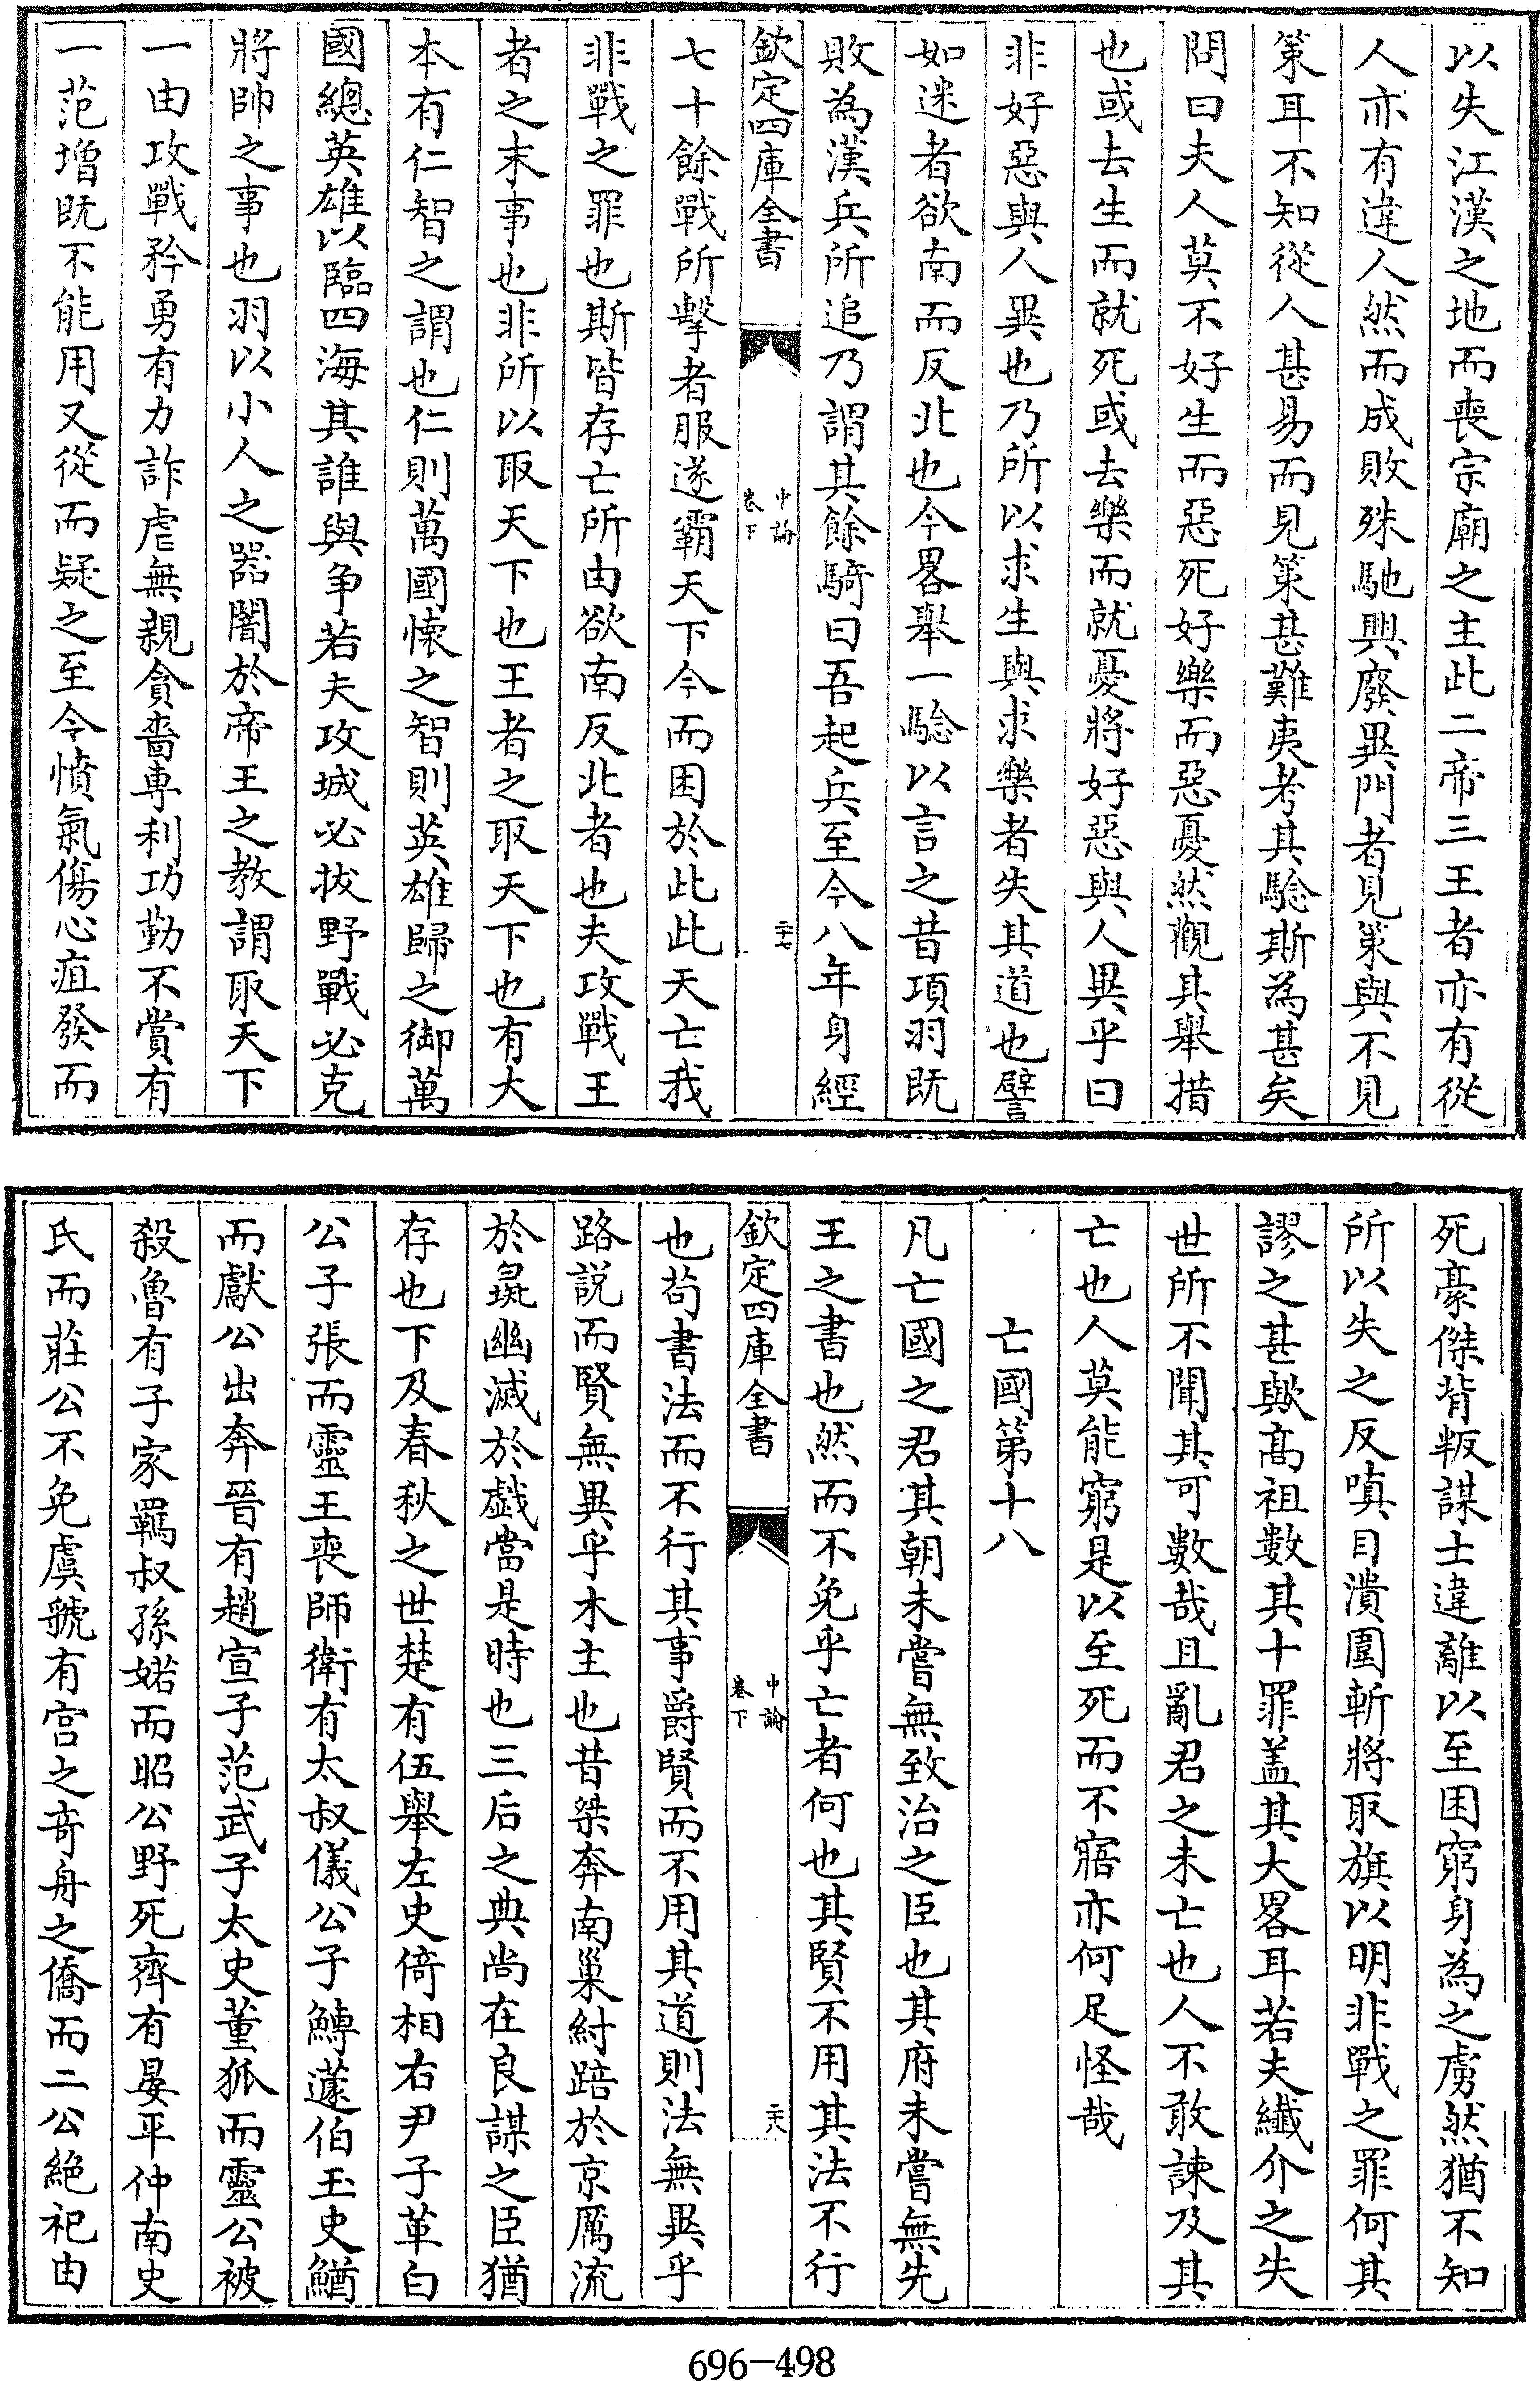 以失江漢之地而喪宗廟之主此二帝三王者亦有從
人亦有違人然而成敗殊馳興廢異門者見策與不見
策耳不知從人甚易而見策甚難夷考其驗斯為甚矣
問曰夫人莫不好生而惡死好樂而惡憂然觀其舉措
也或去生而就死或去樂而就憂將好惡與人異乎曰
非好惡與人異也乃所以求生與求樂者失其道也譬
如迷者欲南而反北也今畧舉一驗以言之昔項羽既
敗為漢兵所追乃謂其餘騎曰吾起兵至今八年身經
欽定四庫全書
中論
卷下
二十七
七十餘戰所擊者服遂霸天下今而困於此此天亡我
非戰之罪也斯皆存亡所由欲南反北者也夫攻戰王
者之末事也非所以取天下也王者之取天下也有大
本有仁智之謂也仁則萬國懷之智則英雄歸之御萬
國總英雄以臨四海其誰與爭若夫攻城必拔野戰必克
將帥之事也羽以小人之器闇於帝王之教謂取天下
一由攻戰矜勇有力詐虐無親貪嗇専利功勤不賞有
一范增既不能用又從而疑之至今憤氣傷心疽發而
死豪傑背叛謀士違離以至困窮身為之虜然猶不知
所以失之反嗔目潰圍斬將取旗以明非戰之罪何其
謬之甚歟高祖數其十罪盖其大畧耳若夫纎介之失
世所不聞其可數哉且亂君之未亡也人不敢諫及其
亡也人莫能窮是以至死而不寤亦何足怪哉
亡國第十八
凡亡國之君其朝未嘗無致治之臣也其府未嘗無先
王之書也然而不免乎亡者何也其賢不用其法不行
欽定四庫全書
中論
卷下
二十八
也苟書法而不行其事爵賢而不用其道則法無異乎
路說而賢無異乎木主也昔桀奔南巢紂踣於京厲流
於彘幽滅於戲當是時也三后之典尚在良謀之臣猶
存也下及春秋之世楚有伍舉左史倚相右尹子革白
公子張而靈王喪師衛有太叔儀公子鱄蘧伯玉史鰌
而獻公出奔晉有趙宣子范武子太史董狐而靈公被
殺魯有子家羈叔孫婼而昭公野死齊有晏平仲南史
氏而莊公不免虞虢有宫之奇舟之僑而二公絶祀由
696-498